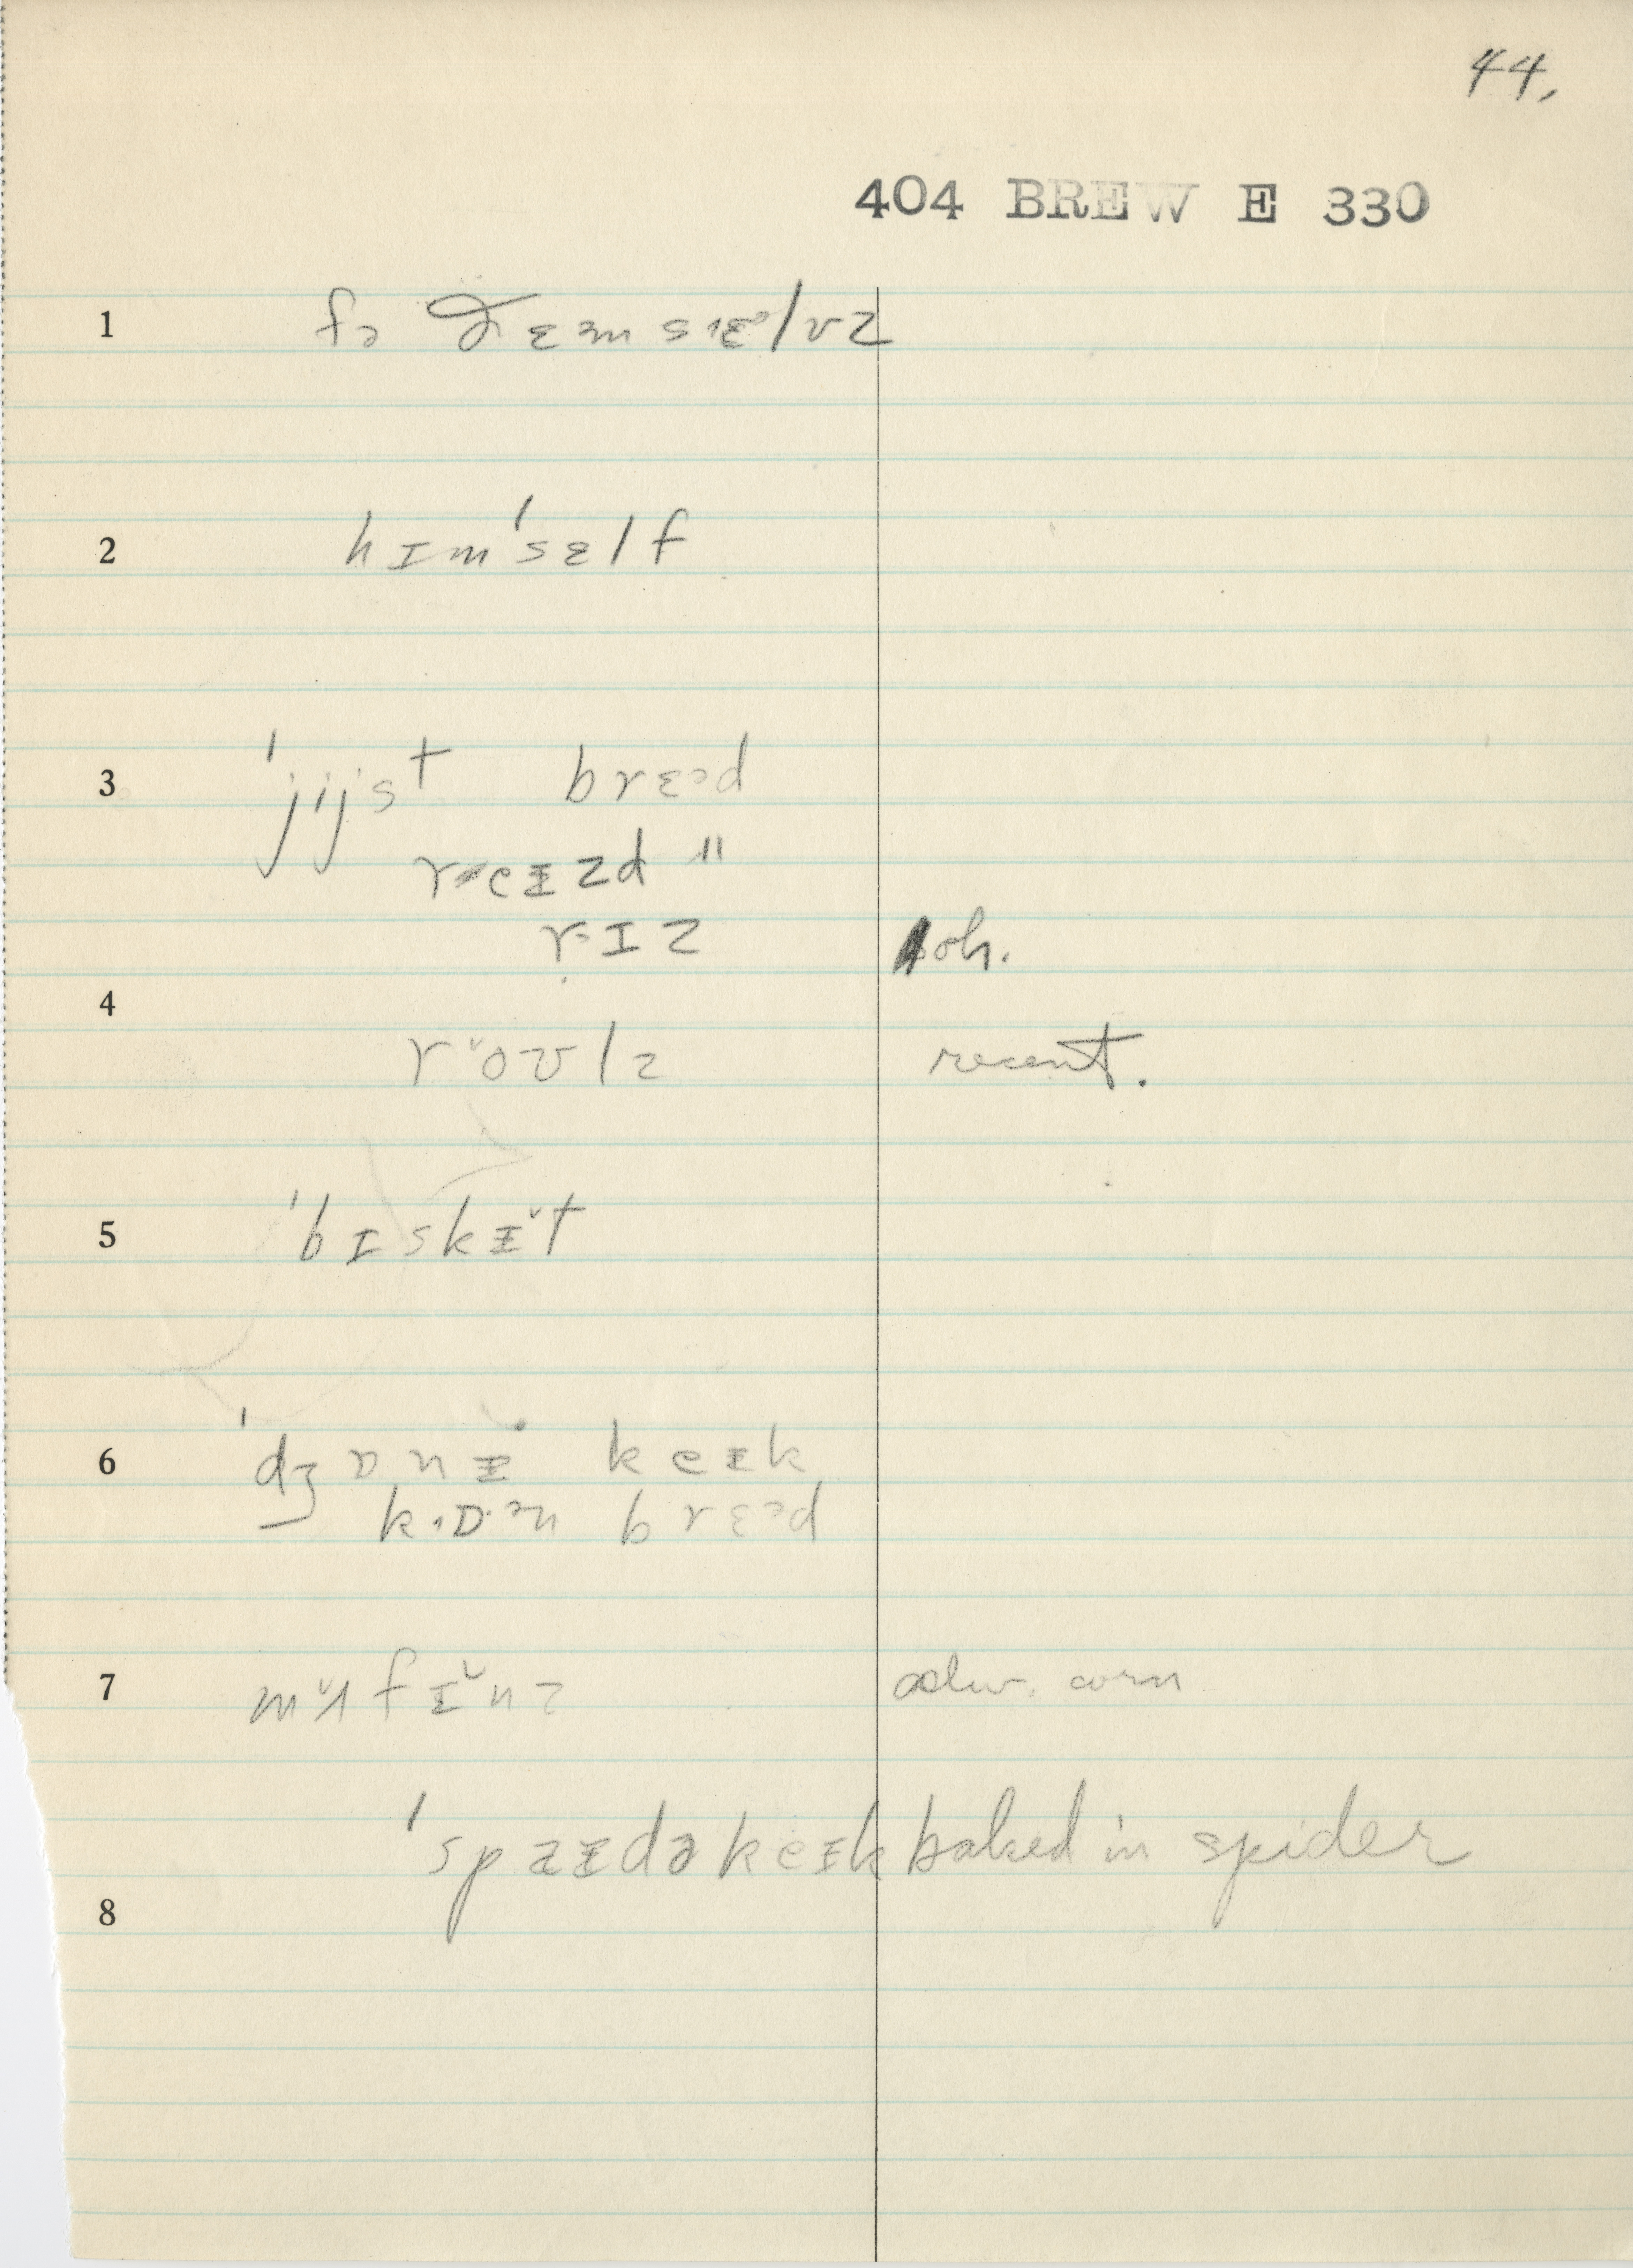 44.
404 BREW E 330
1 fɚ ðɛm sɛᵊlvz
2 hɪm'sɛlf
3 'jijst brɛᵊd
reɪzd "
rɪz oh.
4 roʊlz recent.
5 'bɪskɪ̌t
6 'dʒɒnɪ keɪk
kɒᵊn brɛᵊd
7 mʌ̌fɪ̌nz alw. corn
'spaɪdə keɪk baked in spider
8